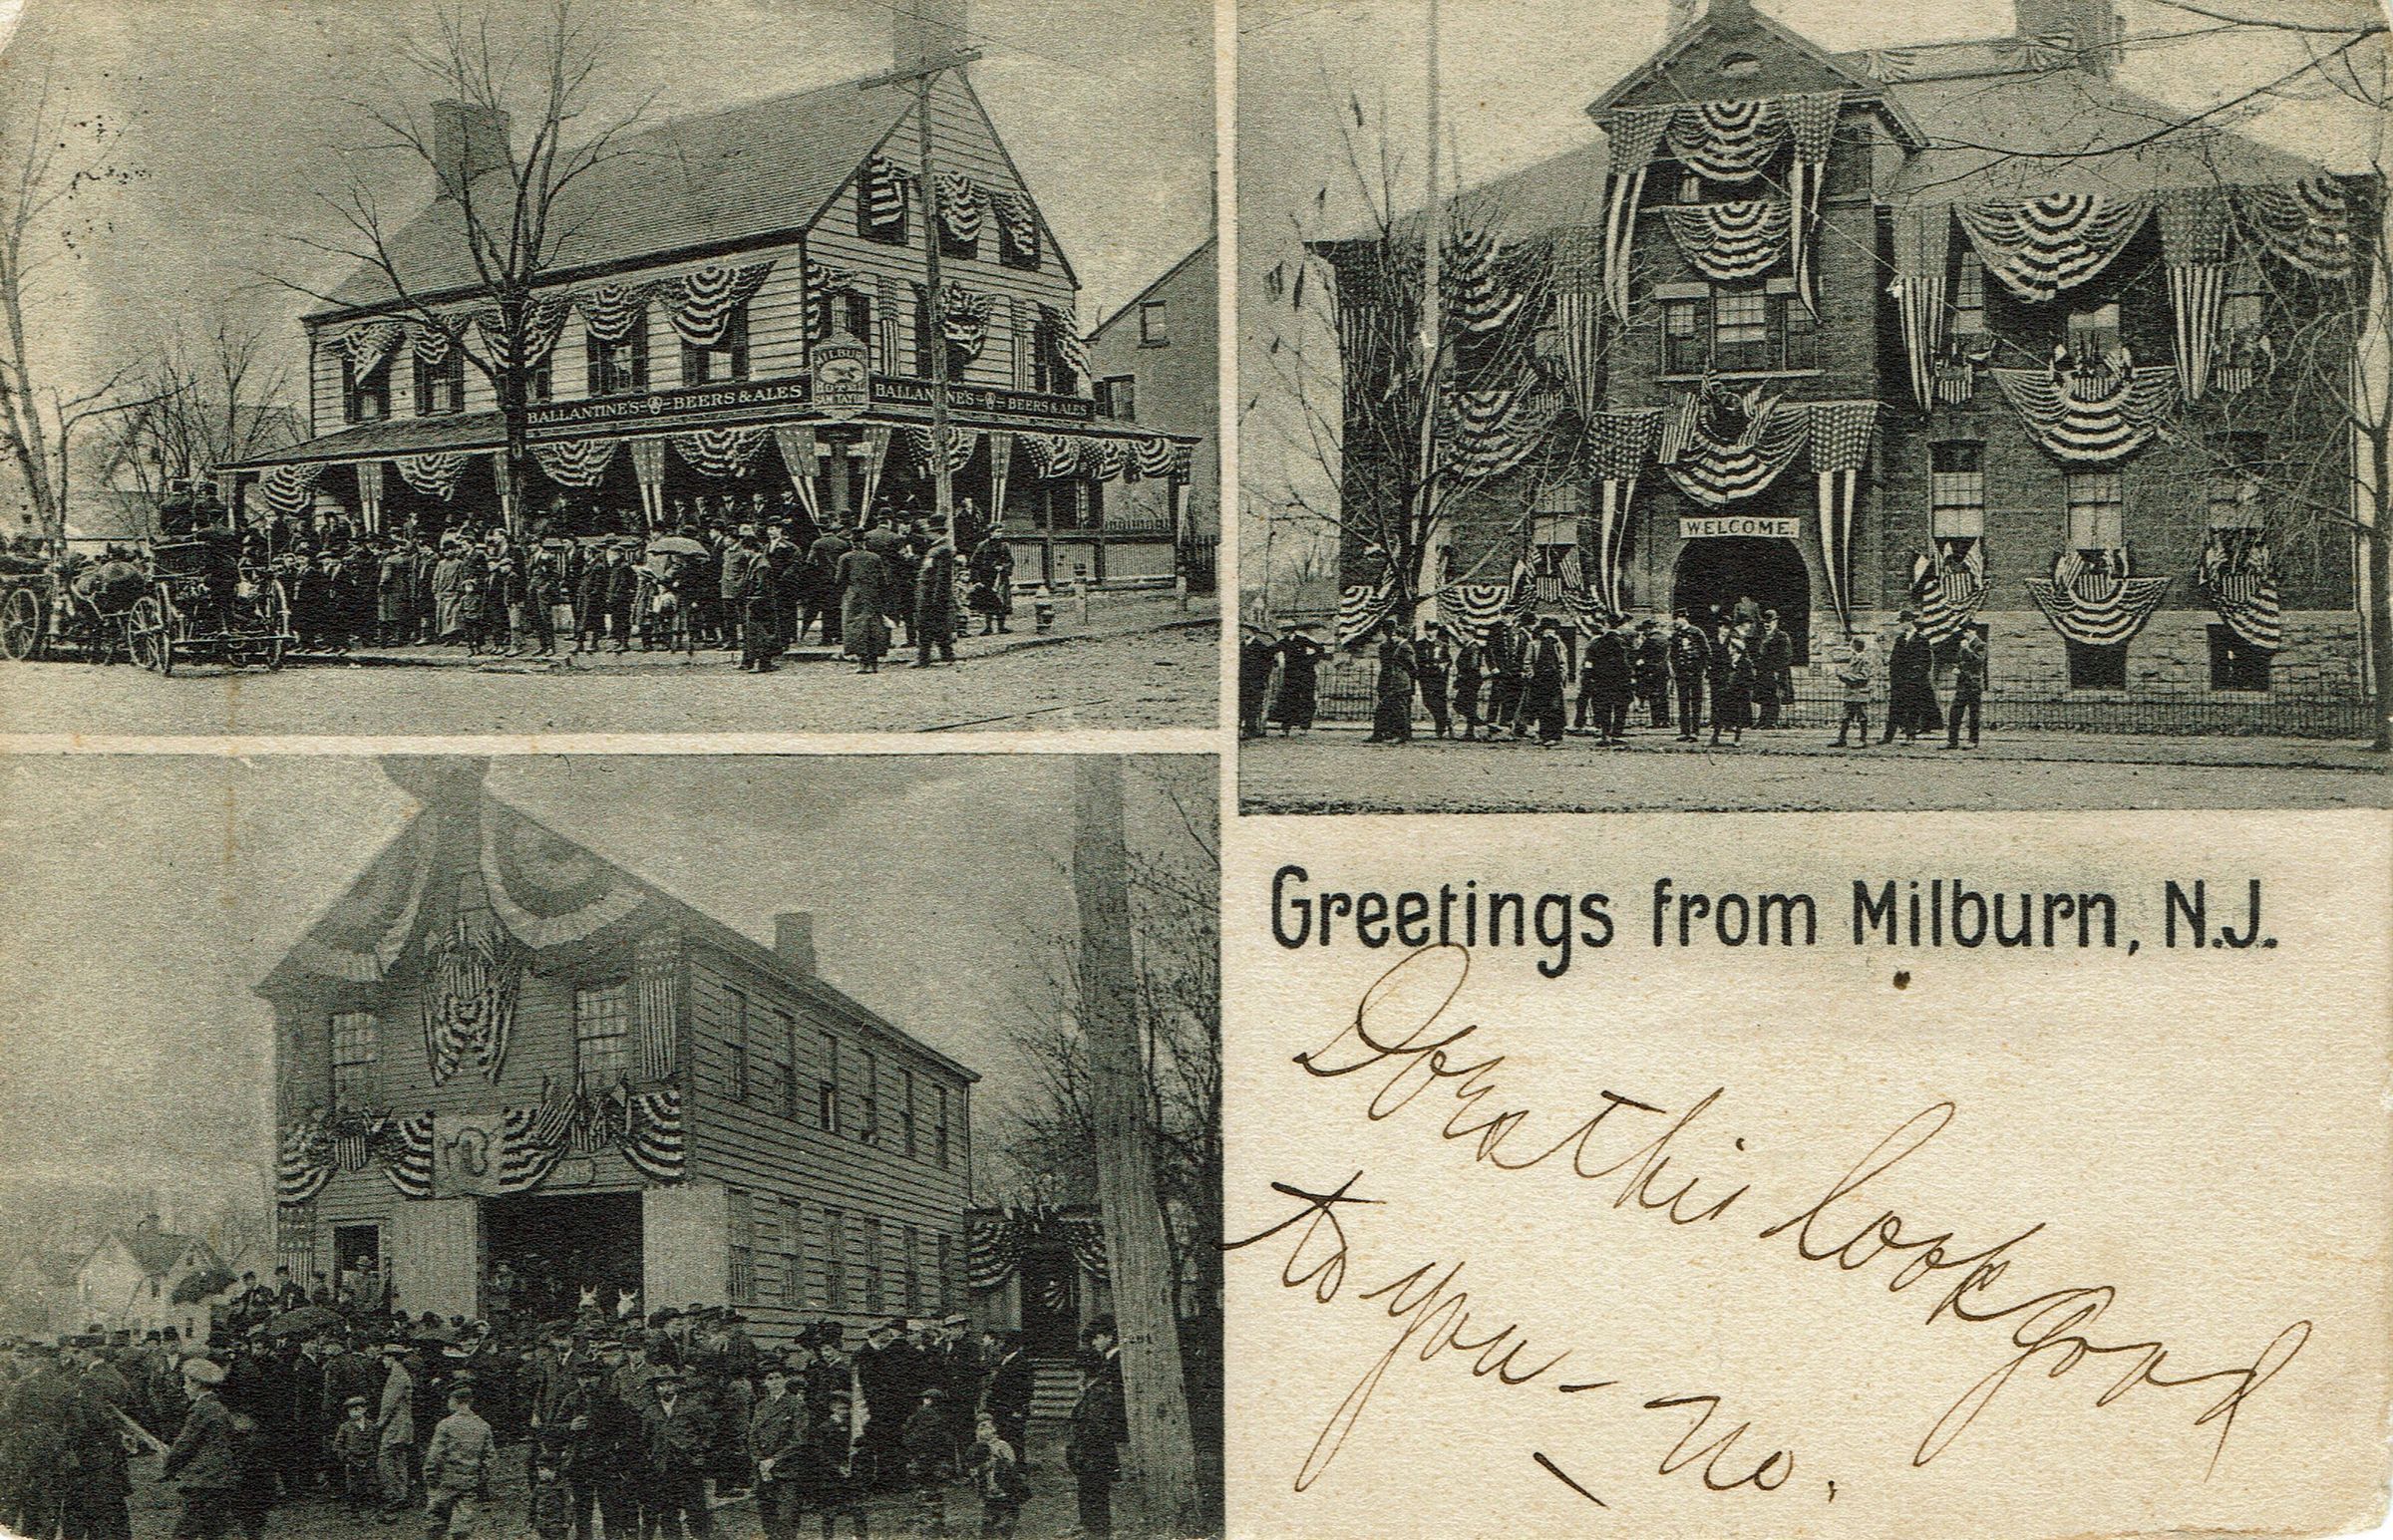 BALLANTINE'S BEERS & ALES
MILBURN
HOTEL
SAM TAYLOR
BALLANTINE'S BEERS & ALES
WELCOME.
Greetings from Milburn, N.J.
Does this look good
to you - No.